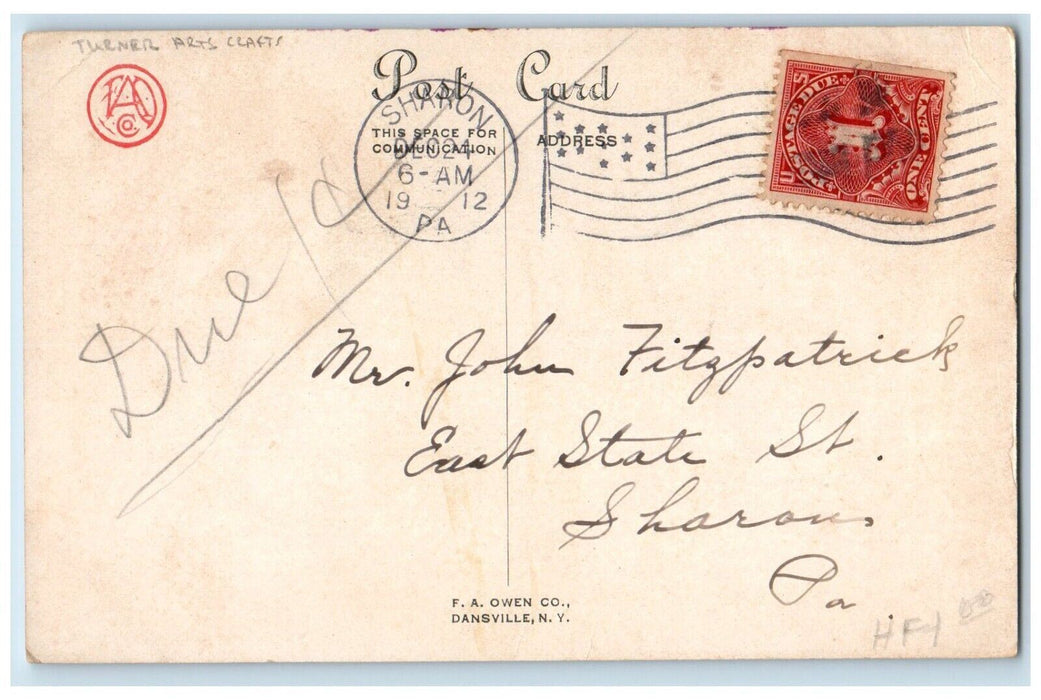 TURNER ARTS CRAFTS
Post Card
THIS SPACE FOR
COMMUNICATION
ADDRESS
SHARON
DEC 24
6-AM
19 12
PA
U.S. POSTAGE DUE
1
ONE CENT
Due 1¢
Mr. John Fitzpatrick
East State St.
Sharon
Pa.
F. A. OWEN CO.,
DANSVILLE, N. Y.